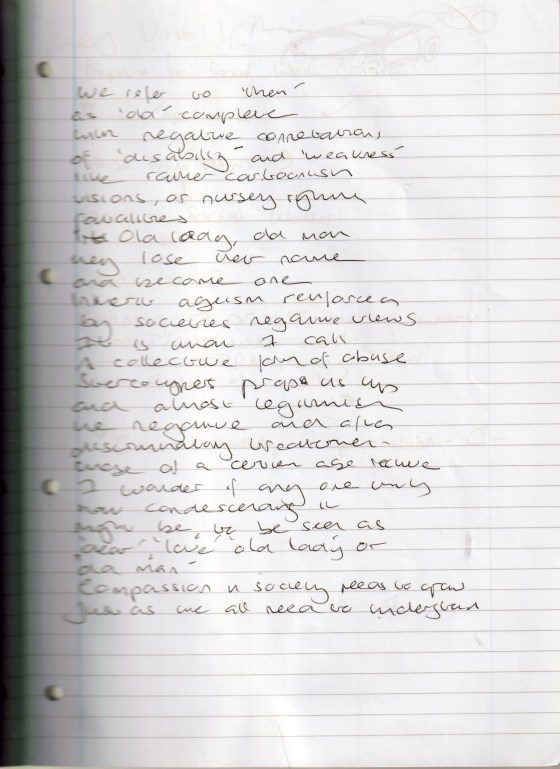 We refer to 'them'
as 'old' complete
with negative connotations
of 'disability' and 'weakness'
like rather cartoonish
visions, or nursery rhyme
favourites
Old lady, old man
they lose their name
and become one
Inherit ageism reinforced
by societies negative views
It is what I call
A collective form of abuse
Stereotypes props us up
and almost legitimise
the negative and often
discriminatory treatment
those of a certain age receive
I wonder if any one
how condescending it
might be, to be seen as
'dear' 'love' 'old lady' or
old man'
Compassion in society needs to grow
just as we all need to understand